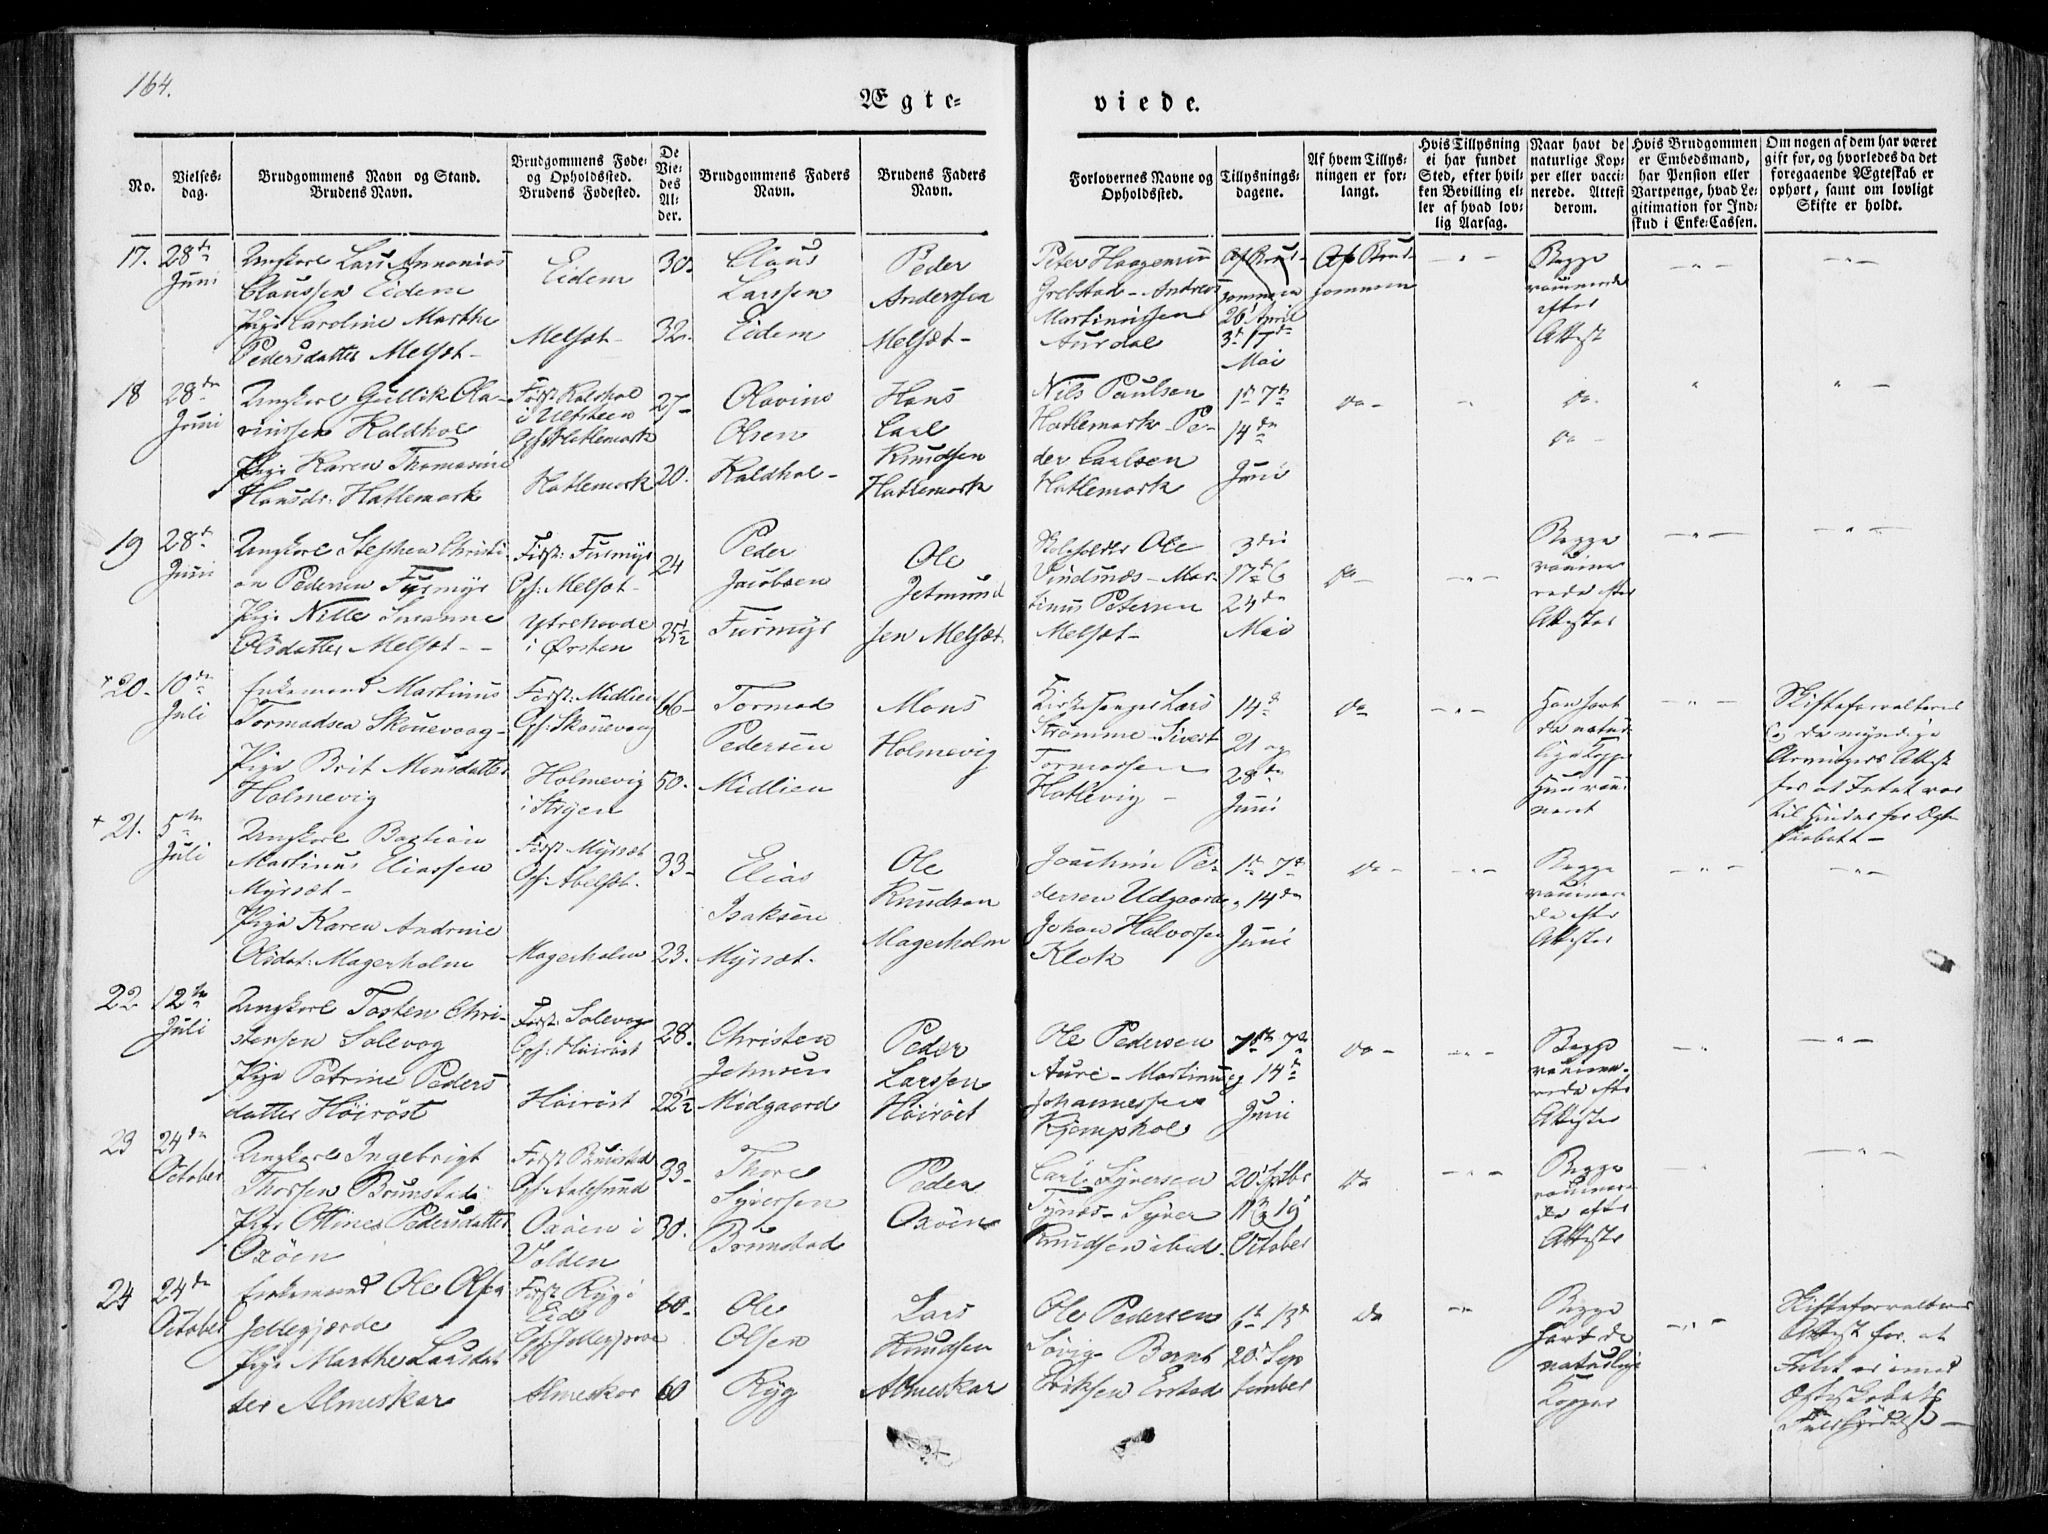 164.
Ægte-
viede.
No.
Vielses-
dag.
Brudgommens Navn og Stand.
Brudens Navn.
Brudgommens Føde-
og Opholdssted.
Brudens Fødested.
De
Vie-
des
Al-
der.
Brudgommens Faders
Navn.
Brudens Faders
Navn.
Forlovernes Navne og
Opholdssted.
Tillysnings-
dagene.
Af hvem Tillys-
ningen er for-
langt.
Hvis Tillysning
ei har fundet
Sted, efter hvil-
ken Bevilling el-
ler af hvad lov-
lig Aarsag.
Naar havt de
naturlige Kop-
per eller vacci-
nerede. Attest
derom.
Hvis Brudgommen
er Embedsmand,
har Pension eller
Vartpenge, hvad Le-
gitimation for Ind-
skud i Enke-Cassen.
Om nogen af dem har været
gift før, og hvorledes da det
foregaaende Ægteskab er
ophørt, samt om lovligt
Skifte er holdt.
17.
28de
Juni
Ungkarl Lars Annanias
Claussen Eidem
Pige Caroline Marthe
Pedersdatter Melsæt
Eidem
Melsæt
30.
32.
Claus
Larssen
Eidem
Peder
Anderssen
Melsæt
Peter Haagensen
Grebstad - Andreas
Martinussen
Aurdal
Af Brud-
gommen
26 April
3die 17de
Mai
Af Brud-
gommen
Begge
vaccinerede
efter
Attest
18
28de
Juni
Ungkarl Gullik Ola-
vinssen Kaldhol
Pige Karen Thomasine
Hansdr. Hatlemark
Født Kaldhol
i Ulfsteen
Oph: Hatlemark
Hatlemark
27
20.
Olavins
Olsen
Kaldhol
Hans
Carl
Knudsen
Hatlemark
Nils Paulsen
Hatlemark - Pe-
der Carlsen
Hatlemark
1ste 7de
14de
Juni
Do
Do
Do
19
28de
Juni
Ungkarl Stephen Christi-
an Pedersen Furmyr
Pige Nille Susanne
Olsdatter Melsæt
Født: Furmyr
Oph: Melsæt
Ytrehovde
i Ørsten
24
25½
Peder
Jacobsen
Furmyr
Ole
Jetmund
sen Melsæt
Skoleholder Ole
Vindsnæs - Mar-
tinus Petersen
Melsæt
3die
17de &
24de
Mai
Do
Begge
vaccine-
rede efter
Attester
20
10de
Juli
Enkemand Martinus
Tormadsen Skouevaag
Pige Brit Monsdatter
Holmevig
Født: Midlien
Oph: Skouevaag
Holmevig
i Stryen
66
50.
Tormad
Pedersen
Midlien
Mons
Holmevig
Kirkesanger Lars
Strømme - Sivert
Tormodsen
Hatlevig
14de
21 og
28de
Juni
Do
Han havt
de natur-
lige Kopper
Hun vacci-
neret
Skifteforvalterens
og de myndige
Arvingers Attest
for at Intet var
til Hinder for Ægte-
skabet
21.
5te
Juli
Ungkarl Bastian
Martinus Eliassen
Myrsæt
Pige Karen Andrine
Olsdat: Magerholm
Født Myrsæt
Oph: Abelsæt.
Magerholm
33
23.
Elias
Isaksen
Myrsæt.
Ole
Knudsen
Magerholm
Joachim Pe-
dersen Udgaarde
Johan Halvorsen
Klok
1ste 7de
14de
Juni
Do
Begge
vaccinere-
de efter
Attester
22
12te
Juli
Ungkarl Tosten Chri-
stensen Solevaag
Pige Petrine Peders
datter Høirøst
Født: Solevaag
Oph: Høirøst
Høirøst
28.
22½
Christen
Johnsen
Midgaard
Peder
Larssen
Høirøst
Ole Pedersen
Aure - Martinus
Johannessen
Kjemphol
1ste 7de
og 14de
Juni
Do
Begge
vaccine-
rede efter
Attester
23
24de
October
Ungkarl Ingebrigt
Thoresen Brunstad
Pige Ottine Pedersdatter
Oxøen
Født Brunstad
Oph: Aalesund
Oxøen i
Volden
33
30.
Thore
Syversen
Brunstad
Peder
Oxøen
Carl Syversen
Tynes - Syver
Knudsen ibid.
20 Septbr
11te & 19
October
Do
Begge
vaccinere-
de efter
Attester
24
24de
October
Enkemand Ole Olsen
Jellegjærde
Pige Marthe Larsdat
ter Almeskar
Født Ryg i
Eid
Oph: Jellegjærde
Almeskar
60
60
Ole
Olsen
Ryg
Lars
Knudsen
Almeskar
Ole Pedersen
Søvig Bernt
Eriksen Erstad
6te 13de
20de Sep
tember
Do
Begge
havt de
naturlige
Kopper
Skifteforvalterens
Attest for at
Intet er imod
Ægteskabets
Fuldbyrdelse